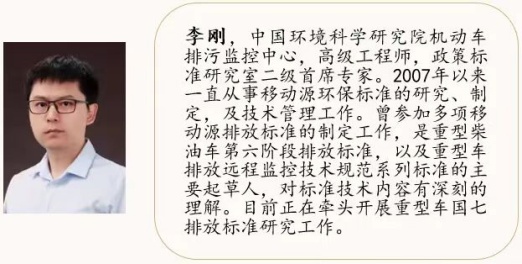 李刚，中国环境科学研究院机动车
排污监控中心，高级工程师，政策标
准研究室二级首席专家。2007年以来
一直从事移动源环保标准的研究、制
定，及技术管理工作。曾参加多项移
动源排放标准的制定工作，是重型柴
油车第六阶段排放标准，以及重型车
排放远程监控技术规范系列标准的主
要起草人，对标准技术内容有深刻的
理解。目前正在牵头开展重型车国七
排放标准研究工作。